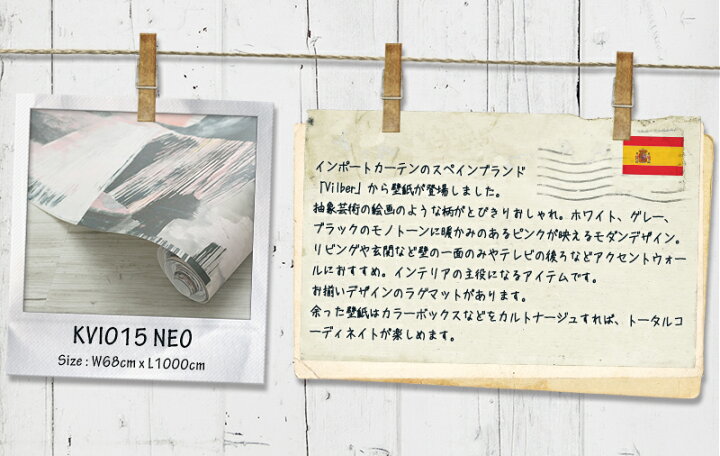 KVI015 NEO
Size : W68cm x L1000cm
インポートカーテンのスペインブランド
「Vilber」から壁紙が登場しました。
抽象芸術の絵画のような柄がとびきりおしゃれ。ホワイト、グレー、
ブラックのモノトーンに暖かみのあるピンクが映えるモダンデザイン。
リビングや玄関など壁の一面のみやテレビの後ろなどアクセントウォー
ルにおすすめ。インテリアの主役になるアイテムです。
お揃いデザインのラグマットがあります。
余った壁紙はカラーボックスなどをカルトナージュすれば、トータルコ
ーディネイトが楽しめます。